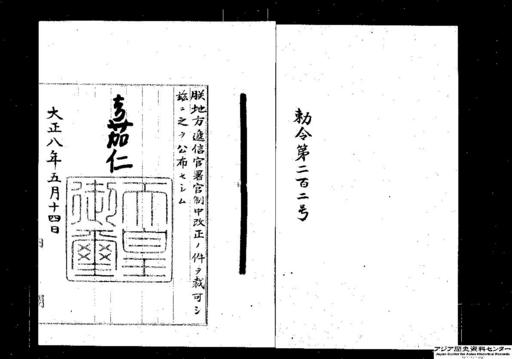 勅令第二百二号
朕地方逓信官署官制中改正ノ件ヲ裁可シ
玆ニ之ヲ公布セシム
嘉仁
天皇
御璽
大正八年五月十四日
アジア歴史資料センター
Japan Center for Asian Historical Records